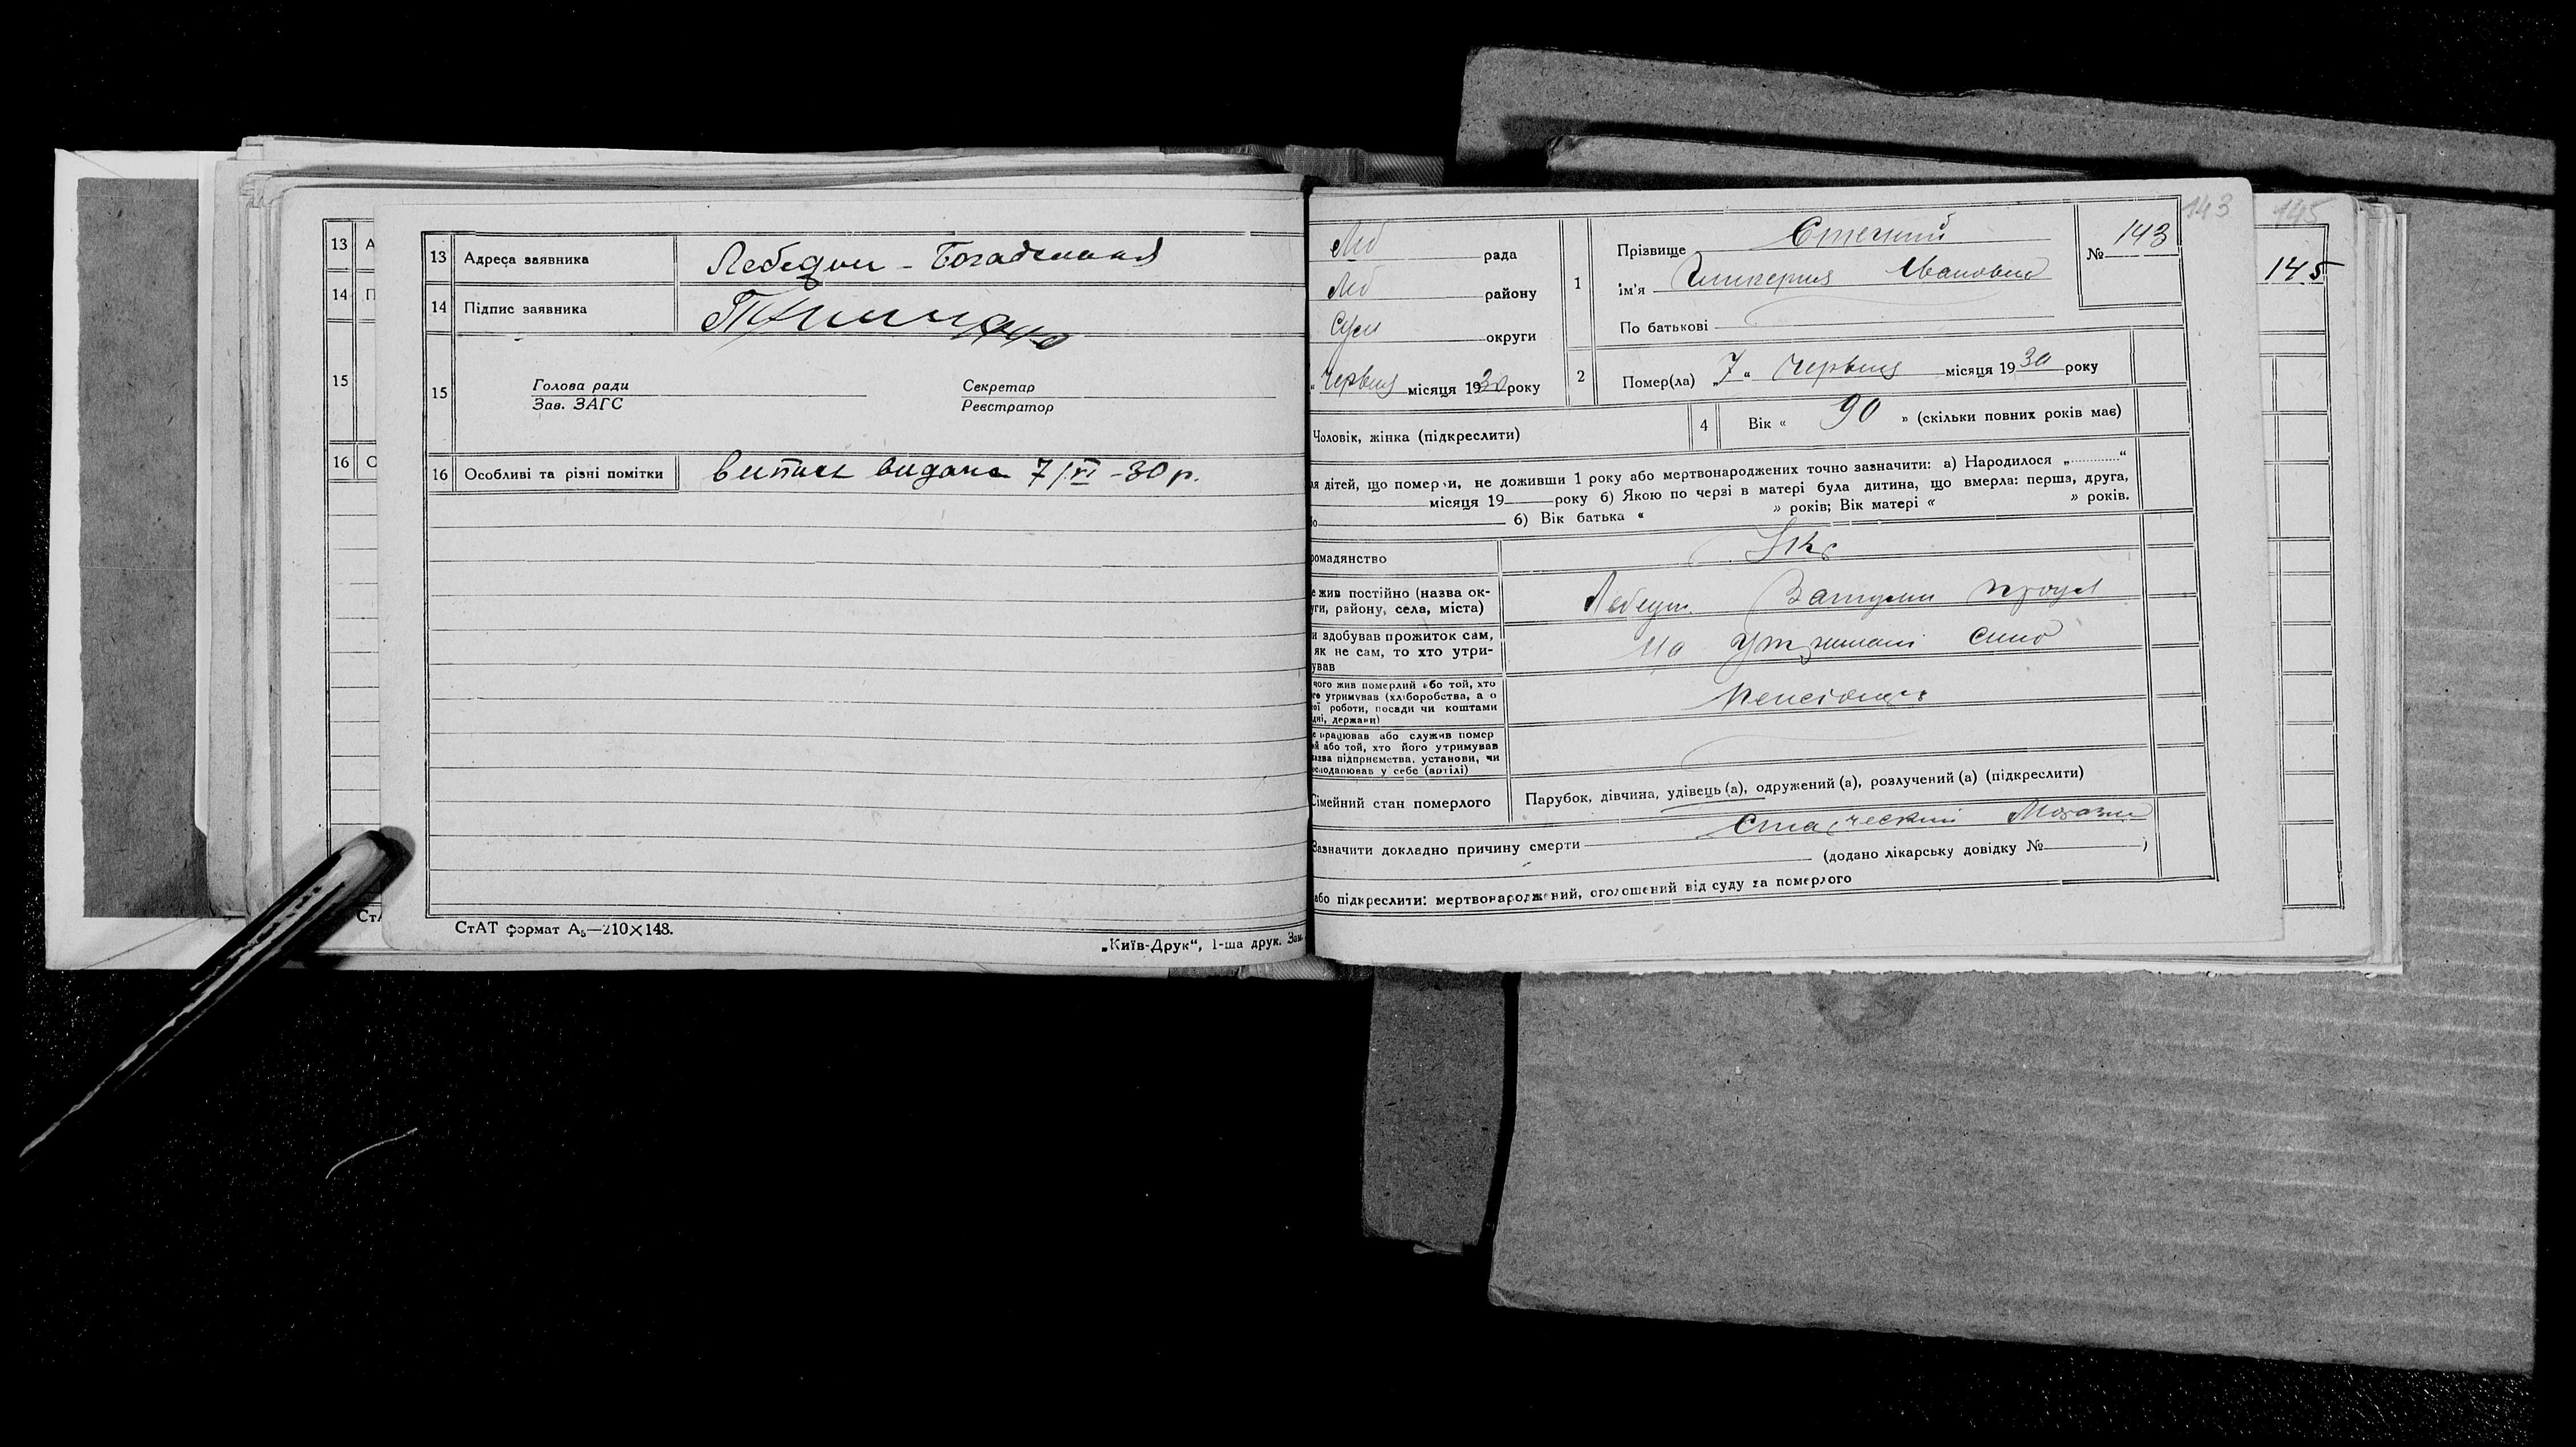 13 А
14 П
15
16 С
СтА
13 Адреса заявника Лебедин - Богадельная
14 Підпис заявника
15 Голова ради Секретар
Зав. ЗАГС Реєстратор
16 Особливі та різні помітки випись видана 7/VI -30 р.
СтАТ формат А₅—210×148.
„Київ-Друк“, 1-ша друк. Зам.
143 145
145
Леб рада
Леб району
Сум округи
“ Червня місяця 1930 року
1 Прізвище
ім'я Іванович
По батькові
№ 143
2 Помер(ла) „7“ Червня місяця 1930 року
Чоловік, жінка (підкреслити) 4 Вік « 90 » (скільки повних років має)
ля дітей, що померли, не доживши 1 року або мертвонароджених точно зазначити: а) Народилося „............“
місяця 19 року б) Якою по черзі в матері була дитина, що вмерла: перша, друга,
бо б) Вік батька « » років; Вік матері « » років.
ромадянство Укр
е жив постійно (назва ок-
уги, району, села, міста) Лебедин
и здобував прожиток сам,
як не сам, то хто утри-
ував На утриманні сина
чого жив померлий або той, хто
го утримував (хліборобства, а о
ої роботи, посади чи коштами
дні, держави) пенсіонер
е працював або служив помер
ий або той, хто його утримував
назва підприємства, установи, чи
сподарював у себе (артілі)
Сімейний стан померлого Парубок, дівчина, удівець(а), одружений(а), розлучений(а) (підкреслити)
Зазначити докладно причину смерти
(додано лікарську довідку № )
або підкреслити: мертвонароджений, оголошений від суду за померлого